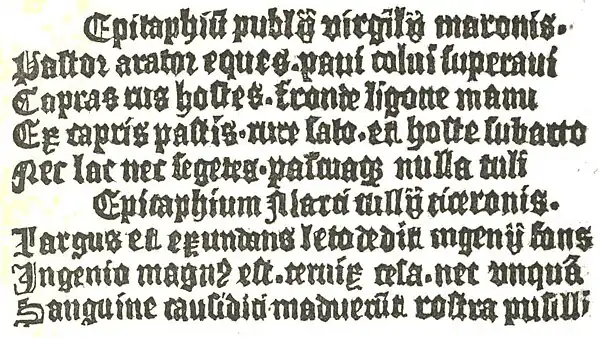 Epitaphiū publij virgilij maronis.
Pastor arator eques. paui colui superaui
Capras rus hostes. fronde ligone manu
Ex capris pastis. rure sato. et hoste subacto
Nec lac nec segetes. pascuaqꝫ nulla tuli
Epitaphium Marci tullij ciceronis.
Largus et exundans leto dedit ingenij fons
Ingenio magnꝰ est. ceruix cesa. nec vnquā
Sanguine causidici maduerūt rostra pusilli